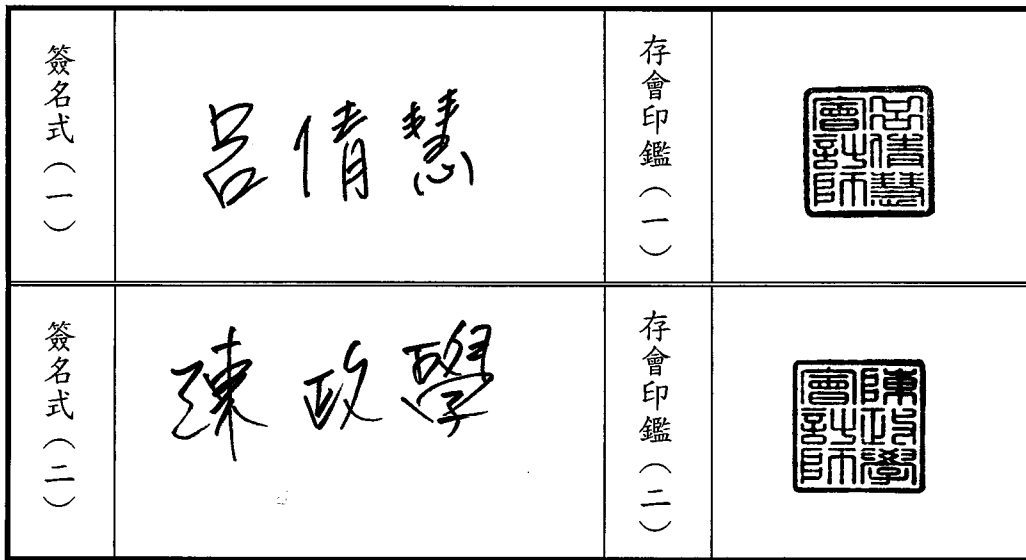 簽名式（一）
呂倩慧
存會印鑑（一）
呂倩慧會計師
簽名式（二）
陳政學
存會印鑑（二）
陳政學會計師